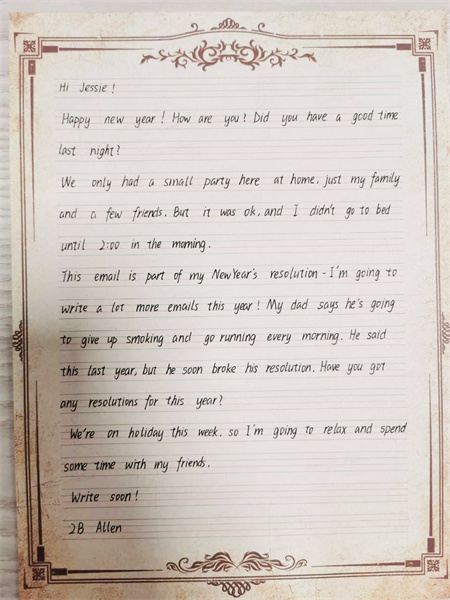 Hi Jessie!
Happy new year! How are you? Did you have a good time
last night?
We only had a small party here at home, just my family
and a few friends. But it was ok, and I didn't go to bed
until 2:00 in the morning.
This email is part of my New Year's resolution - I'm going to
write a lot more emails this year! My dad says he's going
to give up smoking and go running every morning. He said
this last year, but he soon broke his resolution. Have you got
any resolutions for this year?
We're on holiday this week, so I'm going to relax and spend
some time with my friends.
Write soon!
2B Allen